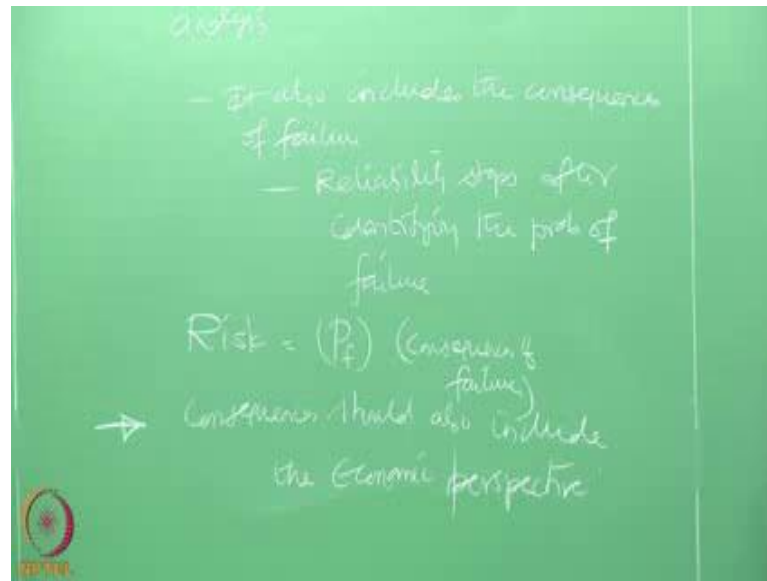 analysis
- It also includes the consequences
of failure
- Reliability stops after
quantifying the prob of
failure
Risk = (Pf) (consequences of
failure)
→ Consequences should also include
the Economic perspective
NPTEL